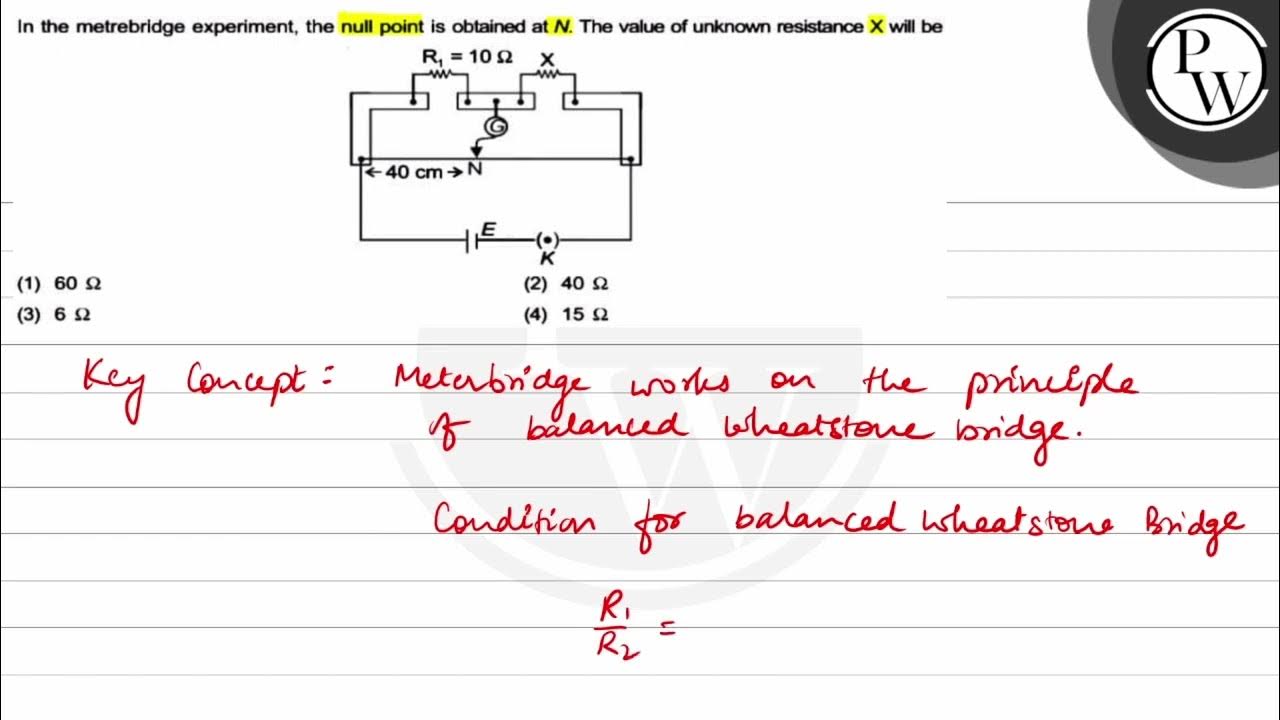 In the metrebridge experiment, the null point is obtained at N. The value of unknown resistance X will be
R₁ = 10 Ω X
G
←40 cm→ N
E
(•)
K
(1) 60 Ω (2) 40 Ω
(3) 6 Ω (4) 15 Ω
PW
Key Concept: Meterbridge works on the principle
of balanced wheatstone bridge.
Condition for balanced wheatstone Bridge
R₁/R₂ =